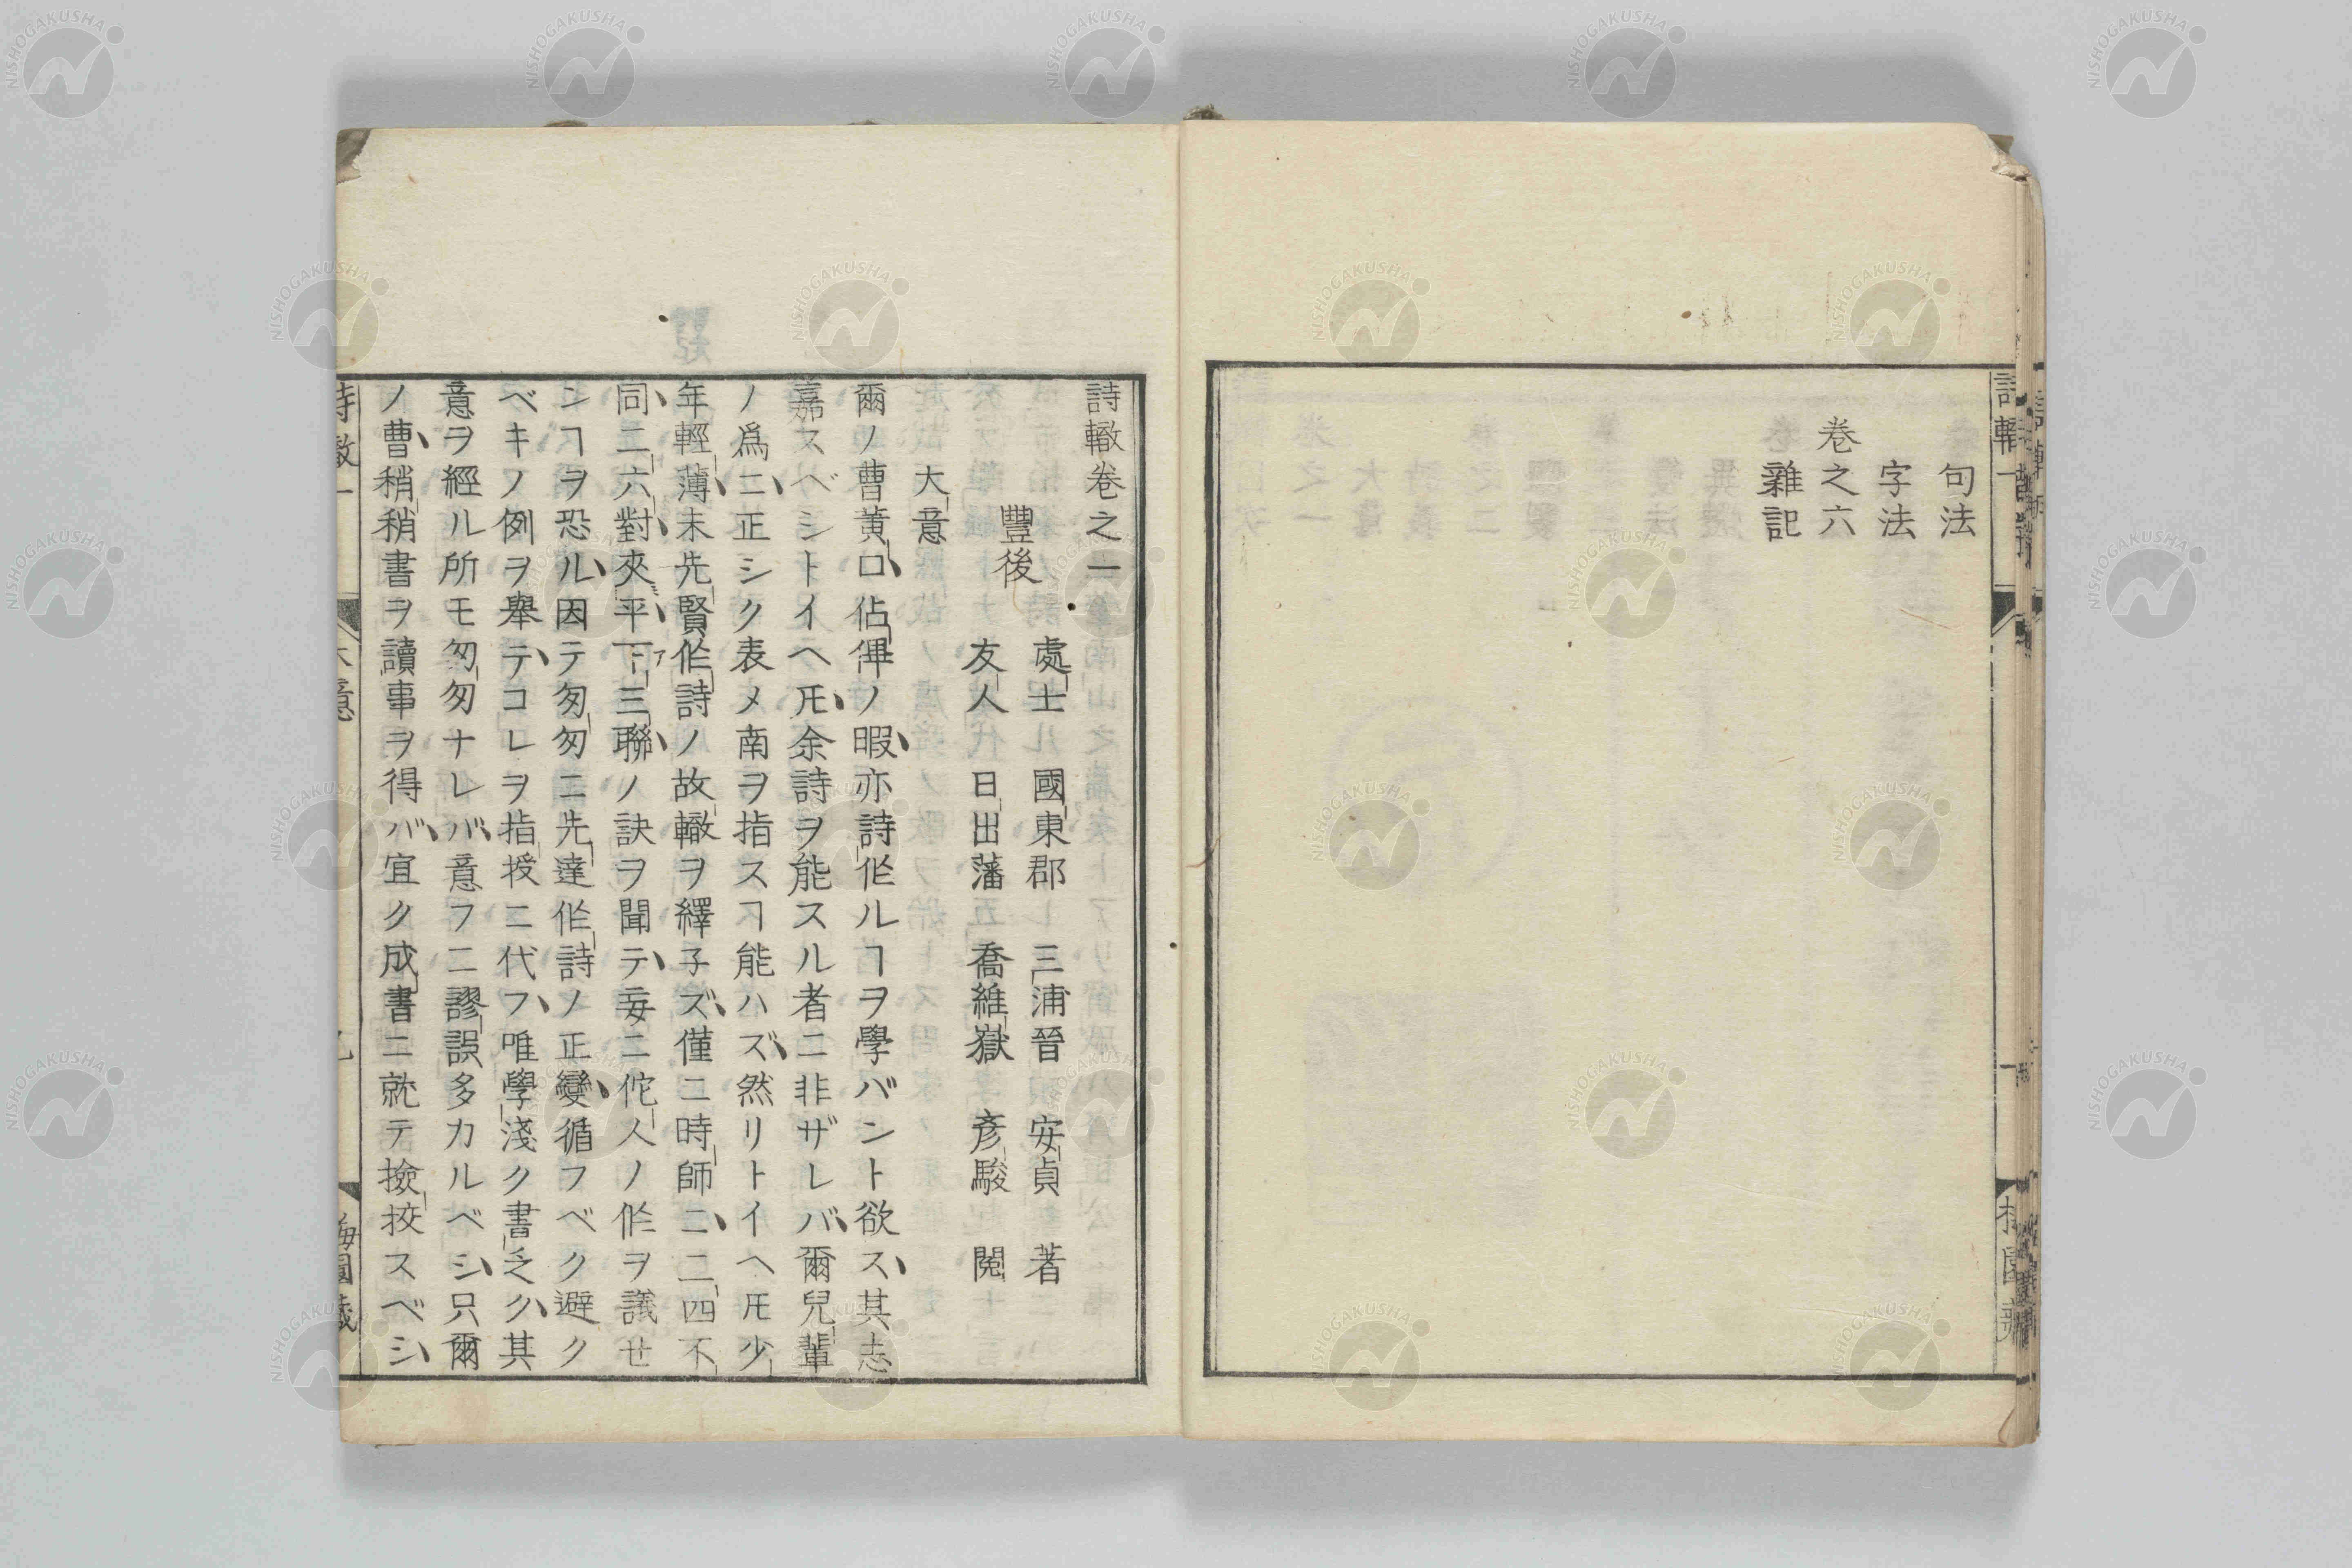 句法
字法
卷之六
雜記
詩轍卷之一
豐後
處士 國東郡 三浦晉 安貞 著
友人 日出藩 喬維嶽 彥駿 閱
大意
爾ノ曹黃口佔俾ノ暇亦詩作ルヿヲ學バント欲ス其志
嘉スベシトイヘ𪜈余詩ヲ能スル者ニ非ザレバ爾兒輩
ノ爲ニ正シク表メ南ヲ指スヿ能ハズ然リトイヘ𪜈少
年輕薄未先賢作詩ノ故轍ヲ繹子ズ僅ニ時師ニ二四不
同二六對夾平下三聯ノ訣ヲ聞テ妄ニ佗人ノ作ヲ議セ
ンヿヲ恐ル因テ匆匆ニ先達作詩ノ正變循フベク避ク
ベキノ例ヲ舉テコレヲ指授ニ代フ唯學淺ク書乏ク其
意ヲ經ル所モ匆匆ナレバ意フニ謬誤多カルベシ只爾
ノ曹稍稍書ヲ讀事ヲ得バ宜ク成書ニ就テ撿挍スベシ
詩轍一
大意
梅園藏
NISHOGAKUSHA